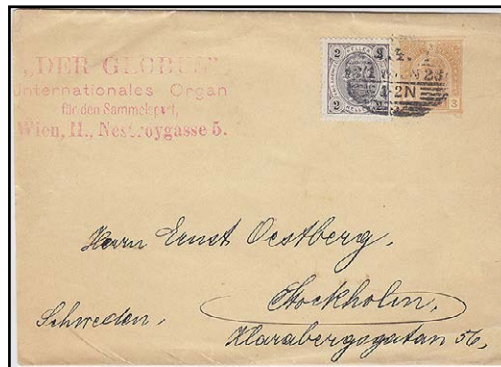 „DER GLOBUS“
Internationales Organ
für den Sammelsport,
Wien, II., Nestroygasse 5.
2 2
HELLER
3
WIEN
1-2N
Herrn Ernst Oestberg,
Stockholm,
Schweden,
Klarabergsgatan 56,